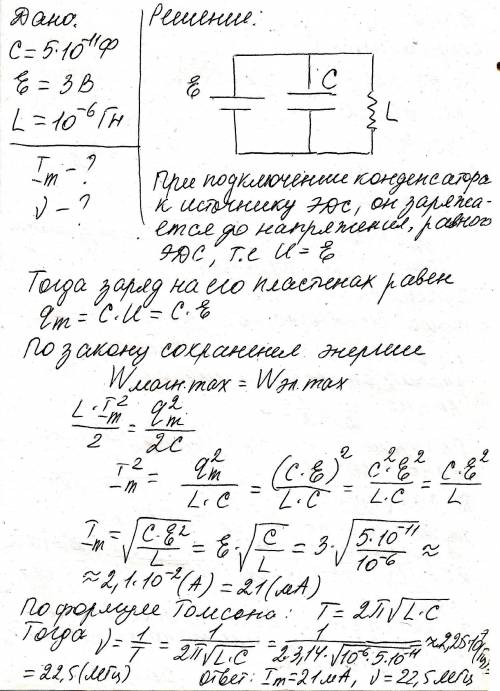 Дано.
Решение:
C = 5·10⁻¹¹Ф
ℰ = 3 В
L = 10⁻⁶ Гн
I_m - ?
ν - ?
ℰ
C
L
При подключении конденсатора
к источнику ЭДС, он заряжа-
ется до напряжения, равного
ЭДС, т.е U = ℰ
Тогда заряд на его пластинах равен
q_m = C·U = C·ℰ
По закону сохранения энергии
W магн.max = W эл.max
L·I_m²/2 = q_m²/2C
I_m² = q_m²/(L·C) = (C·ℰ)²/(L·C) = C²·ℰ²/(L·C) = C·ℰ²/L
I_m = √(C·ℰ²/L) = ℰ·√(C/L) = 3·√(5·10⁻¹¹/10⁻⁶) ≈
≈ 2,1·10⁻² (А) = 21 (мА)
По формуле Томсона: T = 2π√(L·C)
Тогда ν = 1/T = 1/(2π√(L·C)) = 1/(2·3,14·√(10⁻⁶·5·10⁻¹¹)) ≈ 2,25·10⁷ (Гц) =
= 22,5 (МГц)
Ответ: I_m = 21 мА, ν = 22,5 МГц